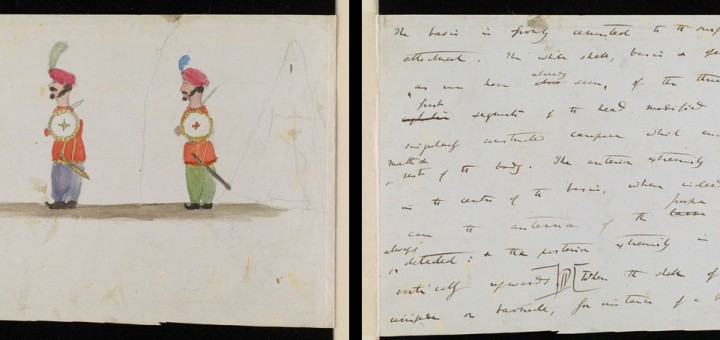 The basis is firmly cemented to the
attachment. The whole shell, basis &
as we have already seen, of the three
first segments of the head modified
singularly constructed carapace which
rest of the body. The anterior extremity
in the centre of the basis, where indeed
proper
can the antennæ of the larva
always
be detected: & the posterior extremity is
vertically upwards. When the shell of
or barnacle, for instance of a